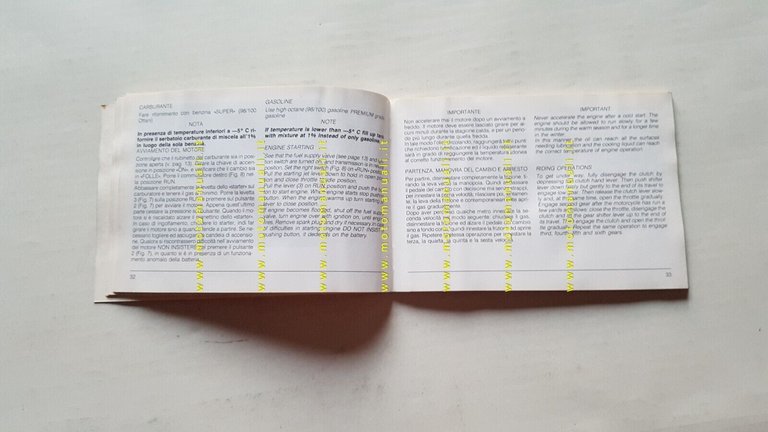 CARBURANTE
Fare rifornimento con benzina «SUPER» (98/100
Ottani)
NOTA
In presenza di temperature inferiori a —5° C ri-
fornire il serbatoio carburante di miscela all'1%
in luogo della sola benzina
AVVIAMENTO DEL MOTORE
Controllare che il rubinetto del carburante sia in posi-
zione aperta (v. pag. 13). Girare la chiave di accen-
sione in posizione «ON», e verificare che il cambio sia
in «FOLLE». Porre il commutatore destro (Fig. 8) nel-
la posizione RUN
Abbassare completamente la levetta dello «starter» sul
carburatore e tenere il gas al minimo. Porre la levetta
3 (Fig. 7) sulla posizione RUN e premere sul pulsante
2 (Fig. 7) per avviare il motore. Appena quest'ultimo
parte lasciare la posizione del pulsante. Quando il mo-
tore si è riscaldato alzare il levettino dello «starter».
In caso di ingolfamento, chiudere lo starter, indi far
girare il motore sino a quando tende a partire. Se ne-
cessario togliere ed asciugare la candela di accensio-
ne. Qualora si riscontrassero difficoltà nell'avviamento
del motore NON INSISTERE a premere il pulsante
2 (Fig. 7), in quanto si è in presenza di un funziona-
mento anomalo della batteria.
32
GASOLINE
Use high-octane (98/100) gasoline PREMIUM grade
gasoline
NOTE
If temperature is lower than —5° C fill up tank
with mixture at 1% instead of only gasoline
ENGINE STARTING
See that the fuel supply valve (see page 13) and
tion switch are turned on, and transmission is in neutral
position. Set the right switch (Fig. 8) on «RUN» position
Pull the starting jet lever down to hold in open
tion and close throttle to idle position.
Pull the lever (3) on RUN position and push the
to start engine. When engine starts stop pushing
button. When the engine warms up turn starting
lever to close position.
If engine becomes flooded, shut off the fuel
valve, turn engine over with ignition on, until
fires. Remove spark plug and dry if necessary. In
of difficulties in starting engine DO NOT INSIST
pushing button, it depends on the battery.
IMPORTANTE
Non accelerare mai il motore dopo un avviamento a
freddo. Il motore deve essere lasciato girare per al-
cuni minuti durante la stagione calda, e per un perio-
do più lungo durante quella fredda.
In tale modo l'olio circolando, raggiungerà tutti i punti
che richiedono lubrificazione ed il liquido refrigerante
sarà in grado di raggiungere la temperatura idonea
al corretto funzionamento del motore.
PARTENZA, MANOVRA DEL CAMBIO E ARRESTO
Per partire, disinnestare completamente la frizione, ti-
rando la leva verso la manopola. Quindi abbassare
il pedale del cambio con decisione ma senza colpirlo
per innestare la prima velocità, rilasciare poi lentamen-
te, la leva della frizione e contemporaneamente apri-
re il gas gradualmente.
Dopo aver percorso qualche metro innestare la se-
conda velocità nel modo seguente: chiudere il gas,
disinnestare la frizione ed alzare il pedale del cambio
sino a fondo corsa, quindi rinnestare la frizione ed aprire
il gas. Ripetere la stessa operazione per innestare la
terza, la quarta, la quinta e la sesta velocità.
IMPORTANT
Never accelerate the engine after a cold start. The
engine should be allowed to run slowly for a few
minutes during the warm season and for a longer time
in the winter.
In this manner the oil can reach all the surfaces
needing lubrication and the cooling liquid can reach
the correct temperature of engine operation.
RIDING OPERATIONS
To get under way, fully disengage the clutch by
depressing the clutch hand lever. Then push shifter
lever down firmly but gently to the end of its travel to
engage low gear. Then release the clutch lever slow-
ly and, at the same time, open the throttle gradually.
Engage second gear after the motorcycle has run a
few yards as follows: close the throttle, disengage the
clutch and lift the gear shifter lever up to the end of
its travel. Then engage the clutch and open the throt-
tle gradually. Repeat the same operation to engage
third, fourth, fifth and sixth gears.
33
www.motomanuali.it